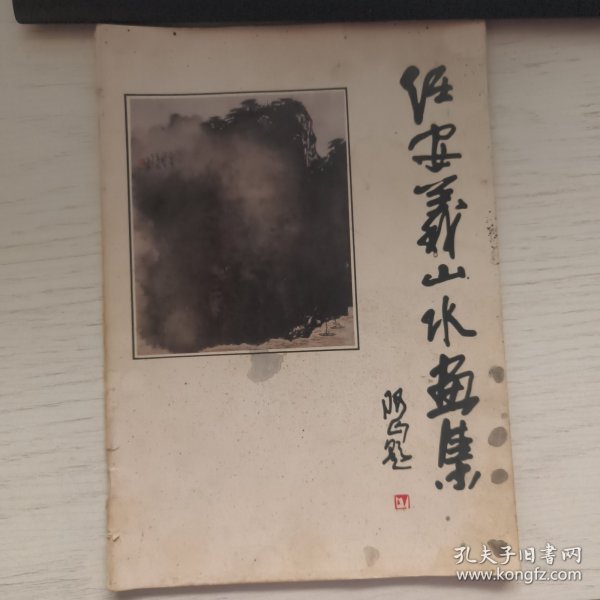 任安义山水画集
题
孔夫子旧书网
www.kongfz.com